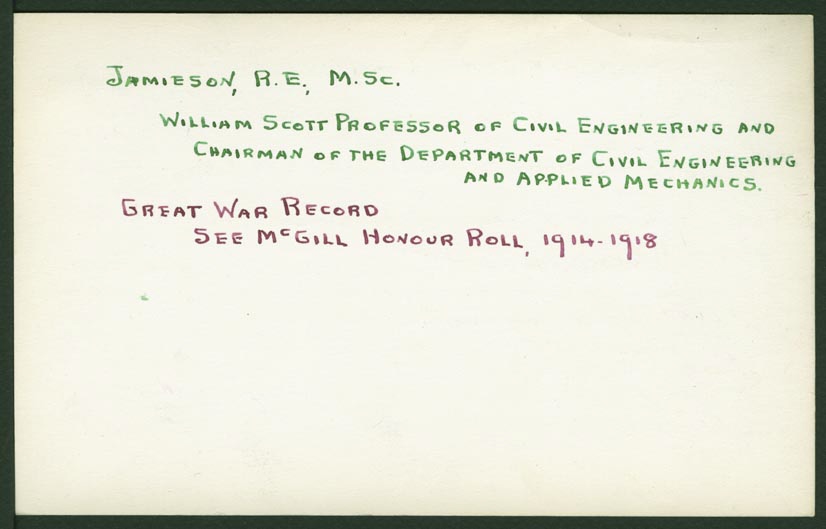 Jamieson, R.E., M.Sc.
William Scott Professor of Civil Engineering and
Chairman of the Department of Civil Engineering
and Applied Mechanics.
Great War Record
See McGill Honour Roll, 1914-1918